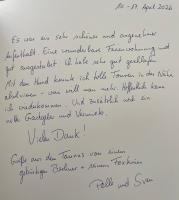 10. - 17. April 2024
Es war ein sehr schöner und angenehmer
Aufenthalt. Eine wunderbare Ferienwohnung und
gut ausgestattet. Ich habe sehr gut geschlafen.
Mit dem Hund konnte ich tolle Touren in der Nähe
absolvieren - was will man mehr. Hoffentlich kann
ich wiederkommen. Und zusätzlich noch ein
toller Gastgeber und Vermieter.
Vielen Dank!
Grüße aus dem Taunus von einem
gebürtigen Berliner + seinem Foxterrier
und Sven